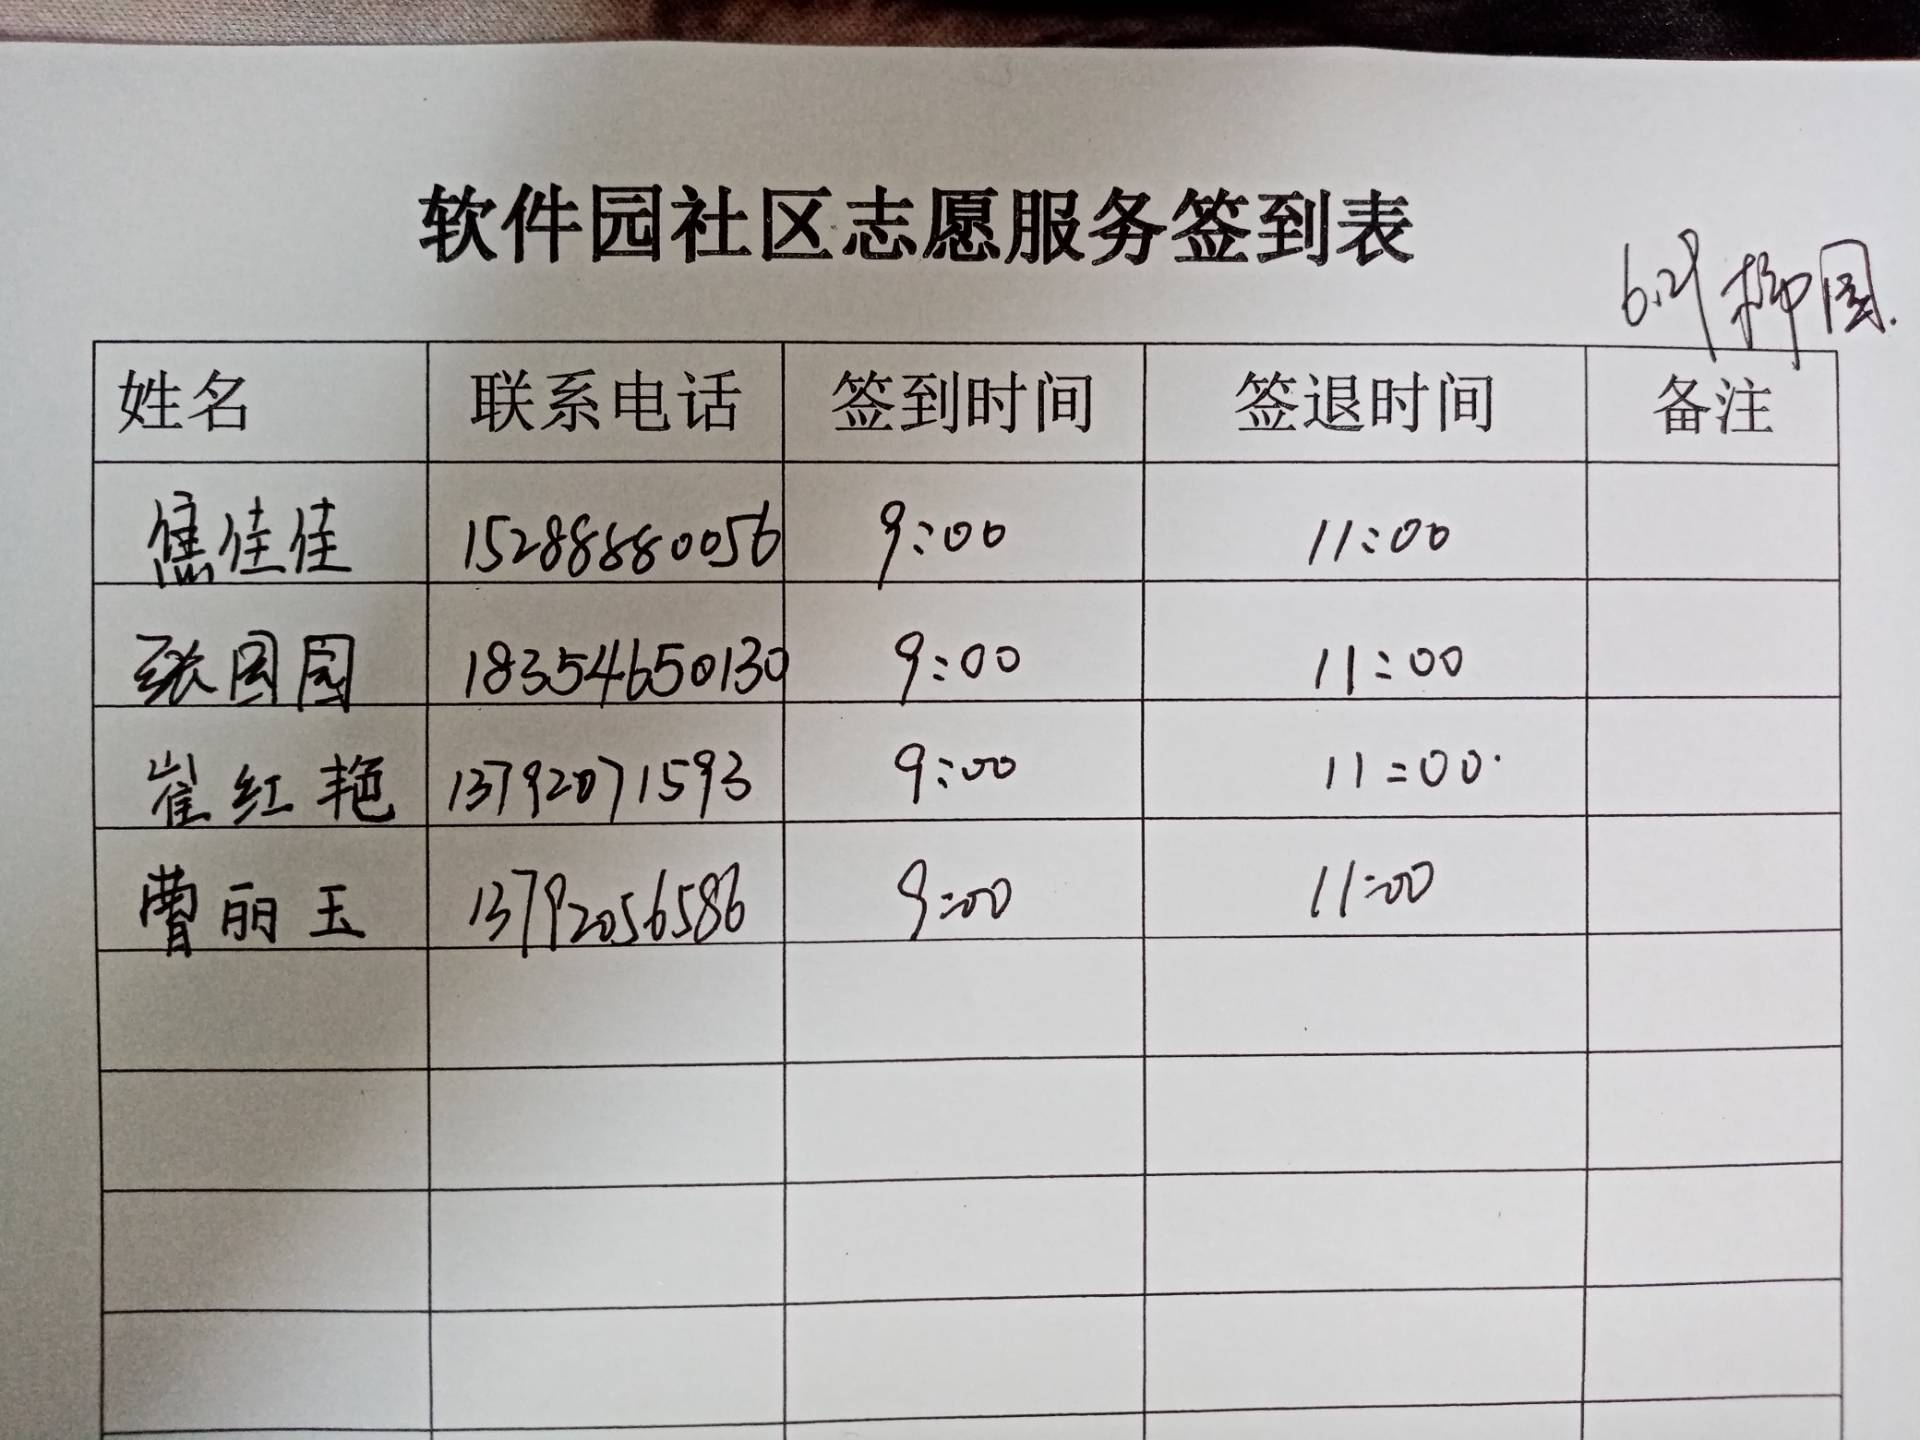 软件园社区志愿服务签到表
6.29 柳园.
姓名 联系电话 签到时间 签退时间 备注
焦佳佳 15288880056 9:00 11:00
张园园 18354650130 9:00 11:00
崔红艳 13792071593 9:00 11:00
曹丽玉 13792056586 9:00 11:00